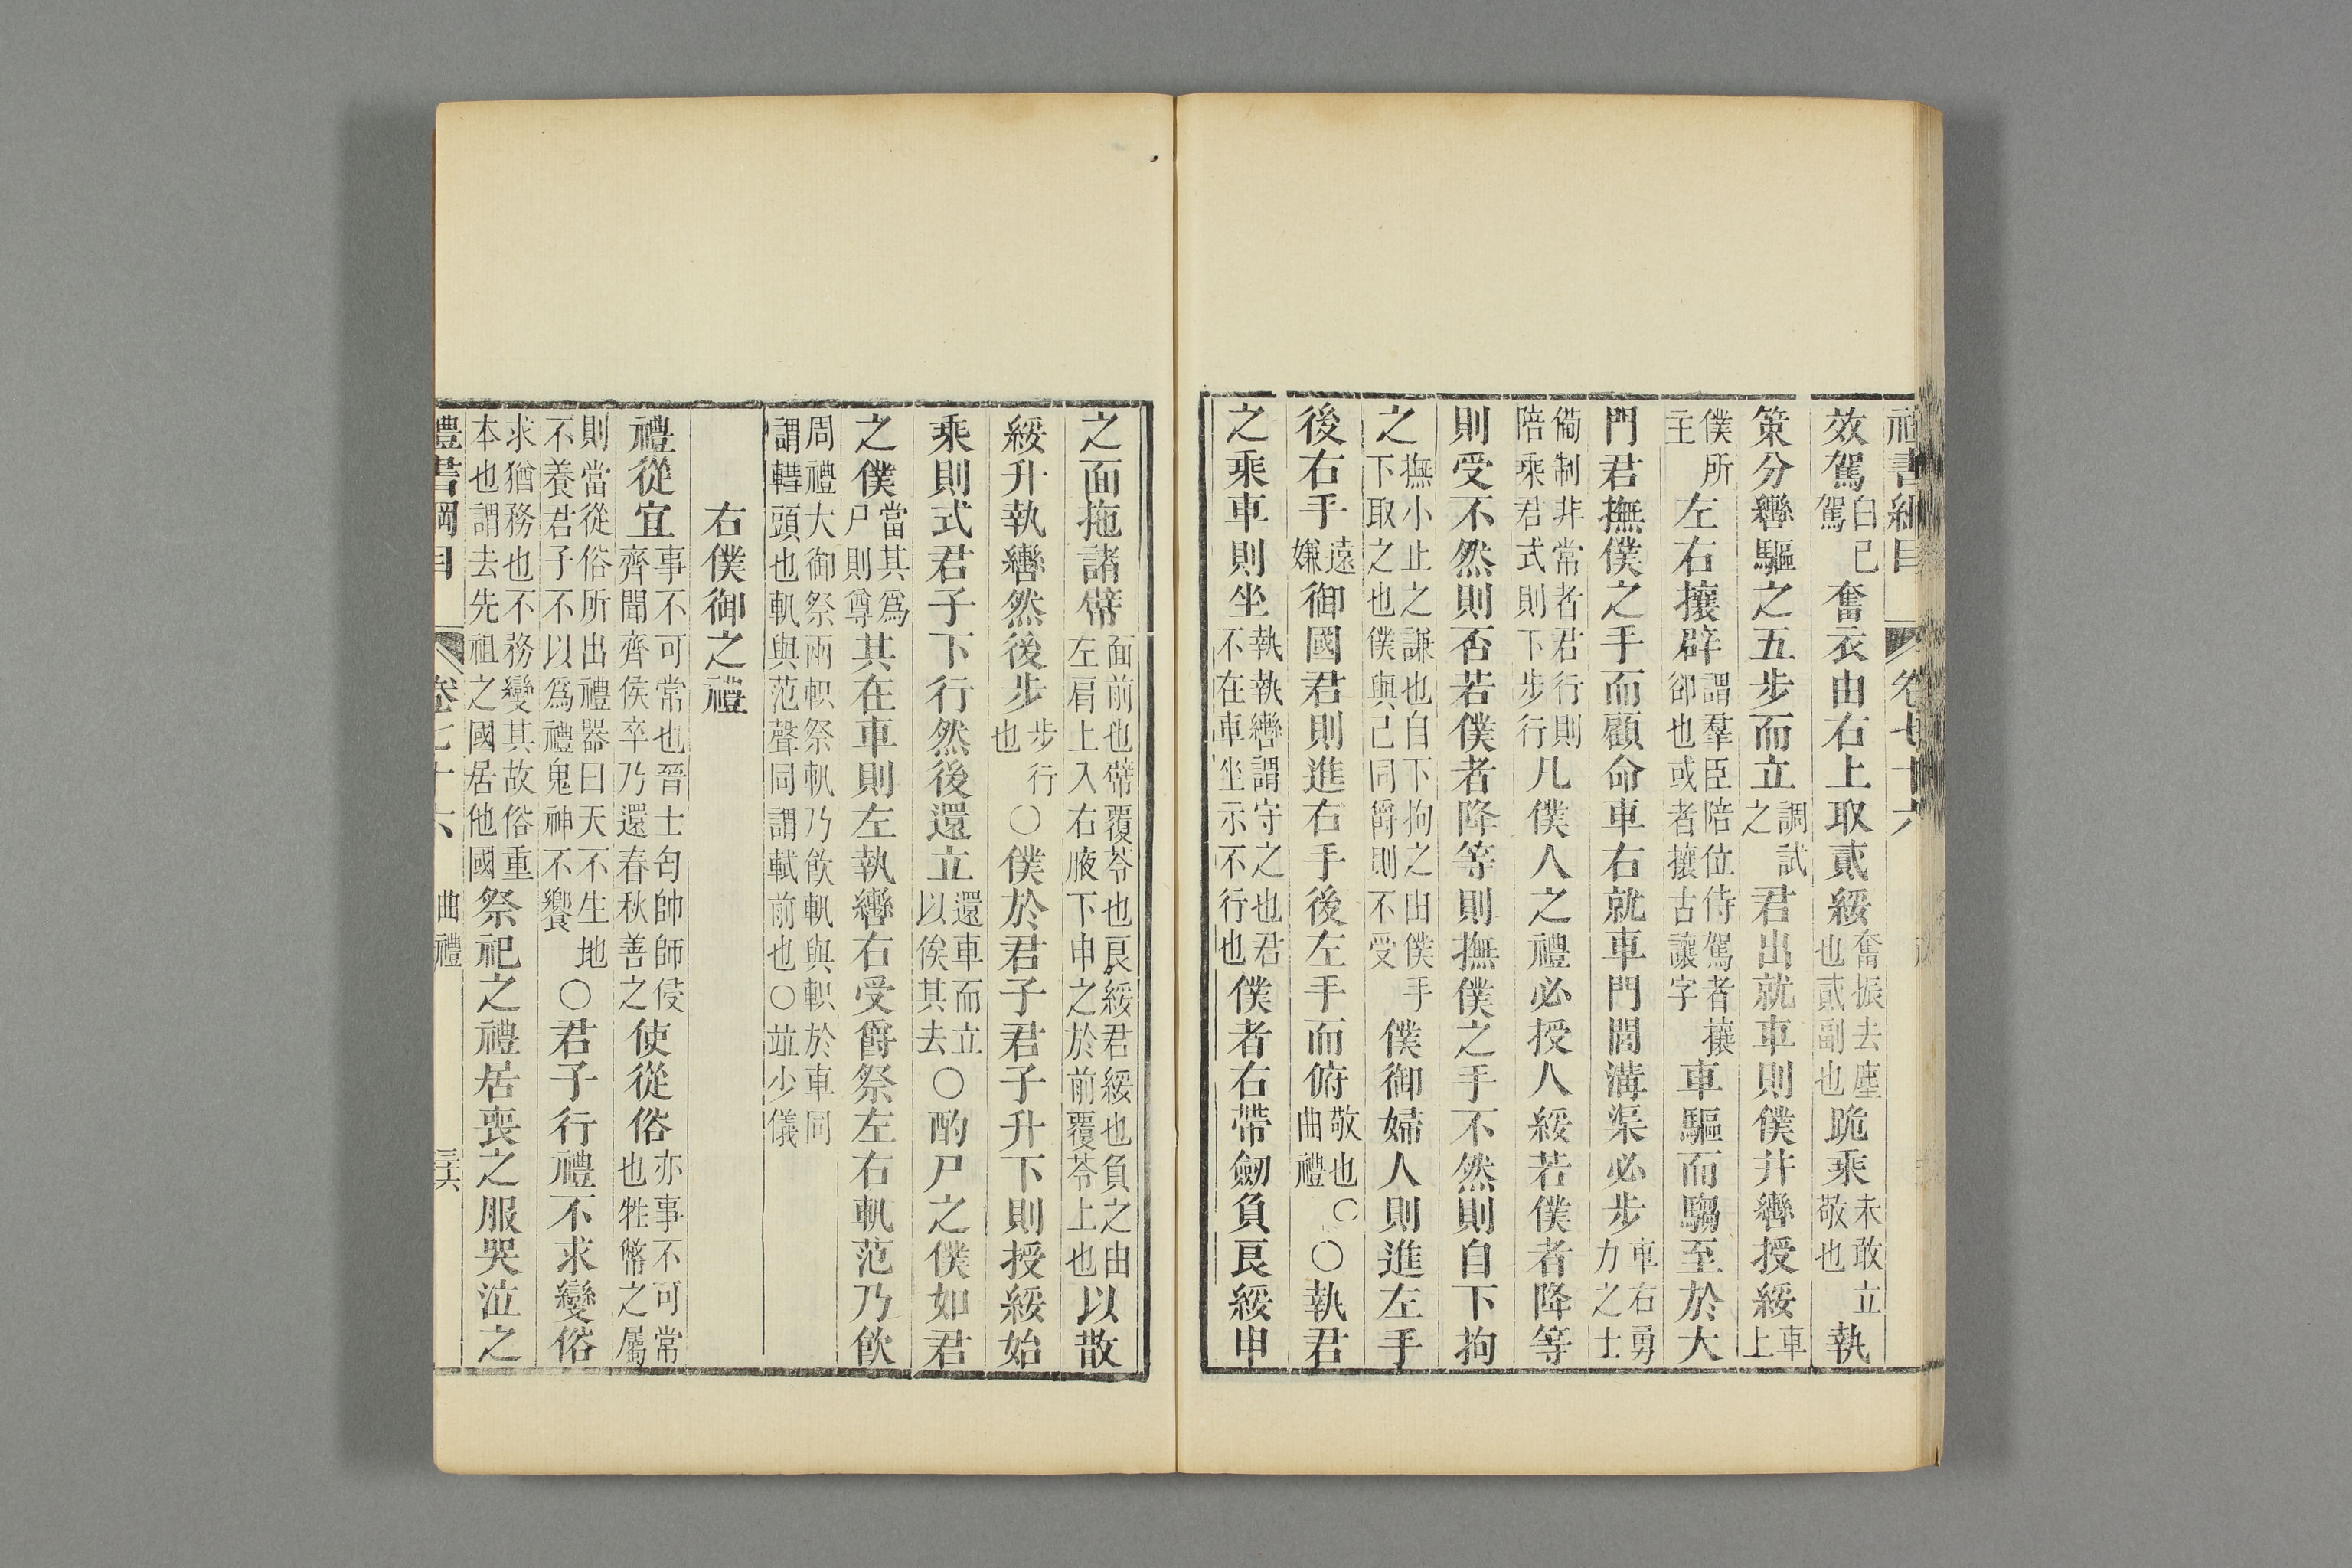 禮書綱目 卷七十六
效駕白已駕奮衣由右上取貳綏奮振去塵也貳副也跪乘未敢立敬也執
策分轡驅之五步而立調試之君出就車則僕幷轡授綏車上
僕所主左右攘辟謂羣臣陪位侍駕者攘卻也或者攘古讓字車驅而騶至於大
門君撫僕之手而顧命車右就車門閭溝渠必步車右勇力之士
備制非常者君行則陪乘君式則下步行凡僕人之禮必授人綏若僕者降等
則受不然則否若僕者降等則撫僕之手不然則自下拘
之撫小止之謙也自下拘之由僕手下取之也僕與己同爵則不受僕御婦人則進左手
後右手遠嫌御國君則進右手後左手而俯敬也曲禮○○執君
之乘車則坐執執轡謂守之也君不在車坐示不行也僕者右帶劒負良綏申
之面拖諸幦面前也幦覆苓也良綏君綏也負之由左肩上入右腋下申之於前覆苓上也以散
綏升執轡然後步步行也○僕於君子君子升下則授綏始
乘則式君子下行然後還立還車而立以俟其去○酌尸之僕如君
之僕當其爲尸則尊其在車則左執轡右受爵祭左右軌范乃飮
周禮大御祭兩軹祭軓乃飮軌與軹於車同謂轊頭也軓與范聲同謂軾前也○竝少儀
右僕御之禮
禮從宜事不可常也晉士匄帥師侵齊聞齊侯卒乃還春秋善之使從俗亦事不可常也牲幣之屬
則當從俗所出禮器曰天不生地不養君子不以爲禮鬼神不饗○君子行禮不求變俗
求猶務也不務變其故俗重本也謂去先祖之國居他國祭祀之禮居喪之服哭泣之
禮書綱目 卷七十六 曲禮 三六